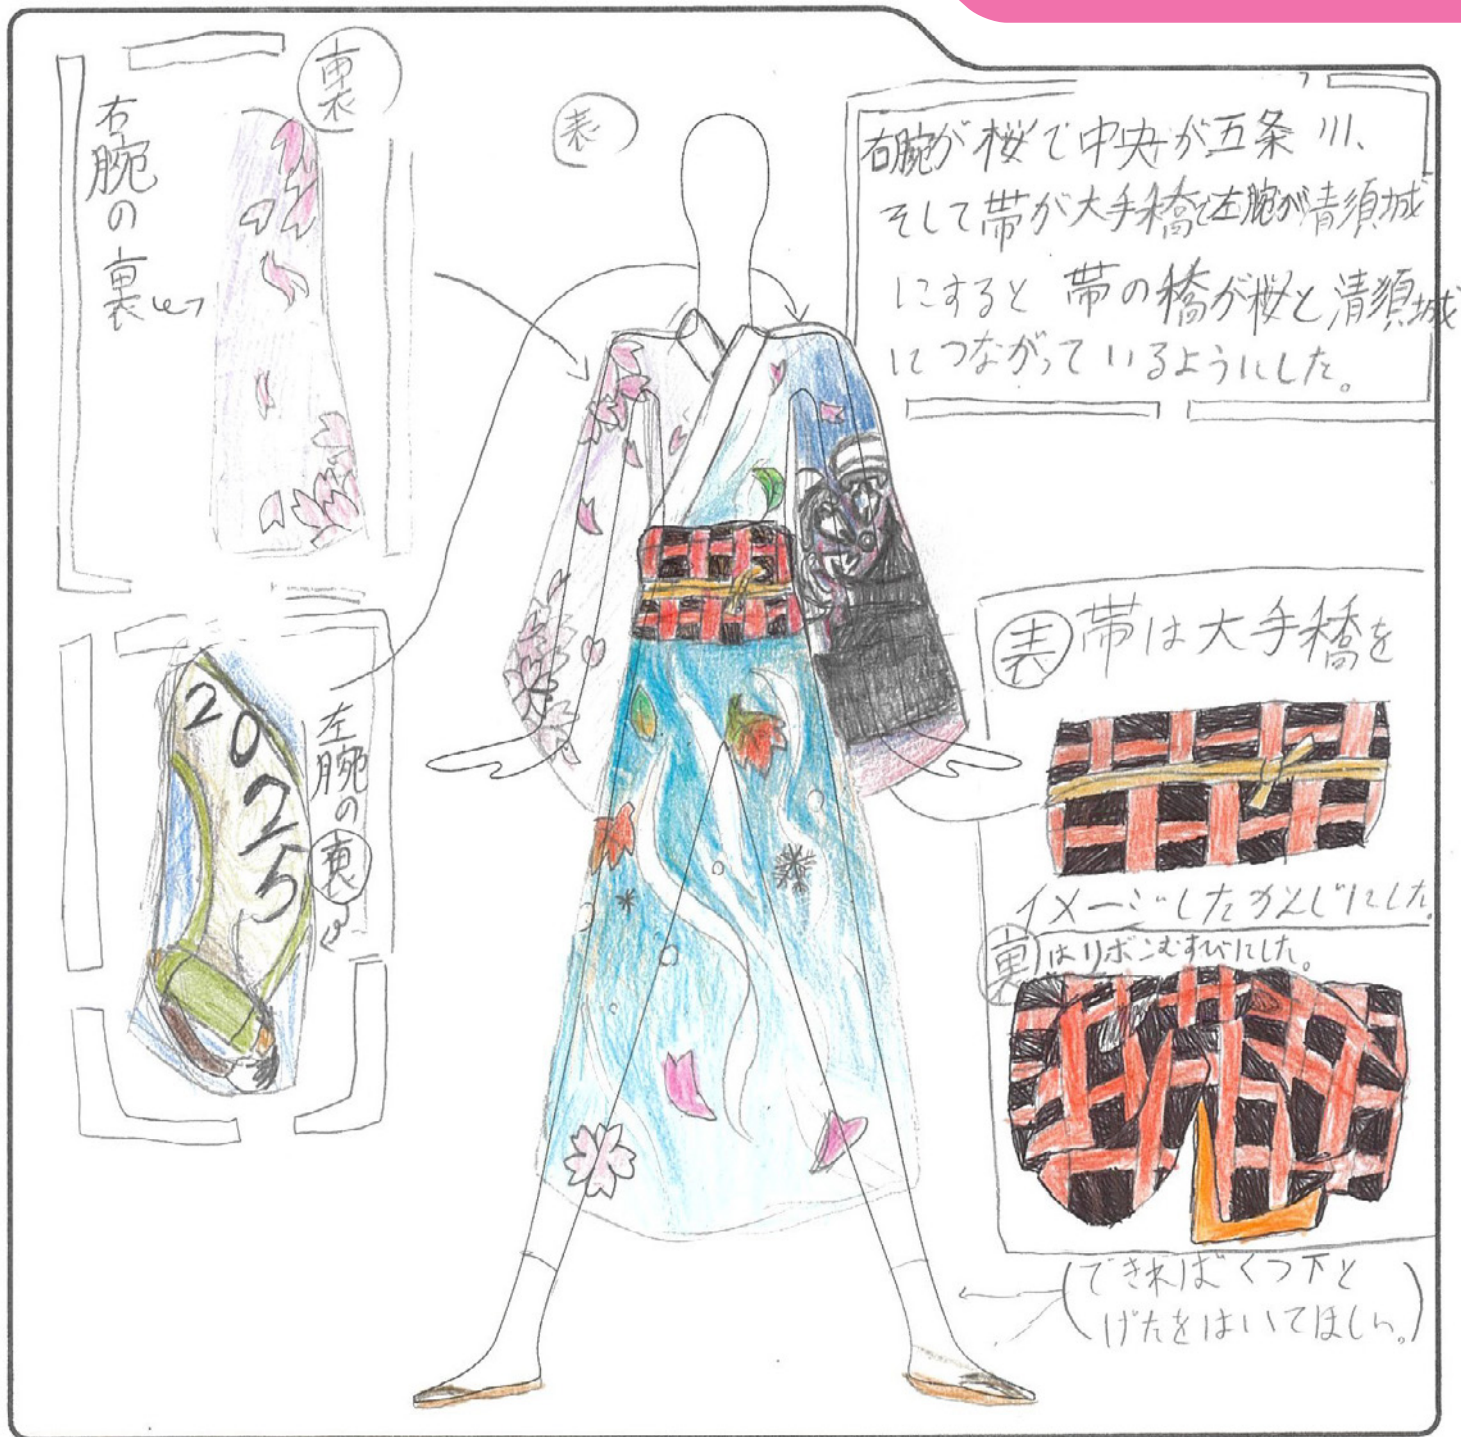 裏
右腕の裏
表
右腕が桜で中央が五条川、
そして帯が大手橋で左腕が清須城
にすると 帯の橋が桜と清須城
につながっているようにした。
2025
左腕の裏
表 帯は大手橋を
イメージしたかんじにした。
裏はリボンむすびにした。
(できればくつ下と
げたをはいてほしい。)